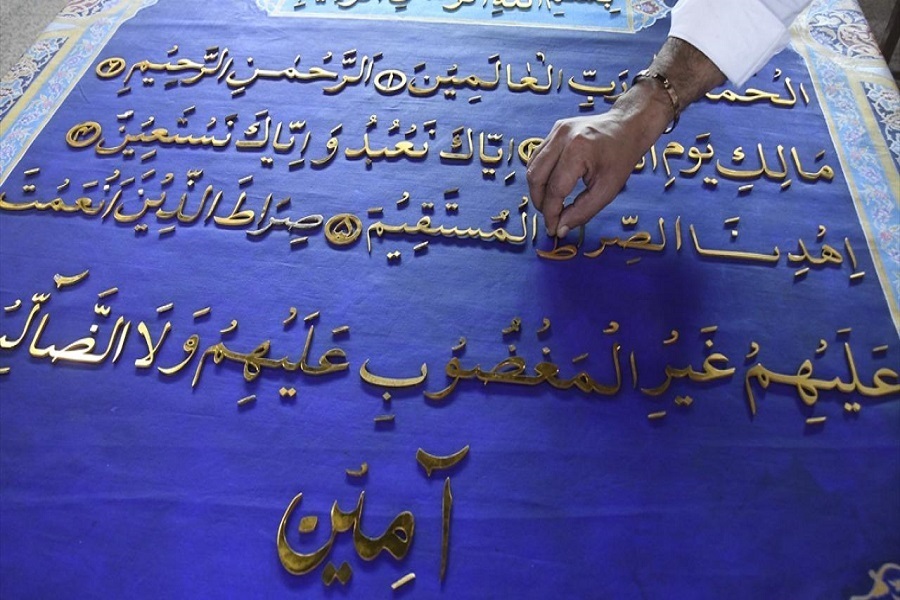 بِسْمِ اللهِ الرَّحْمٰنِ الرَّحِيمِ
الْحَمْدُ رَبِّ الْعَالَمِيْنَ ۱ الرَّحْمٰنِ الرَّحِيْمِ ۲
مَالِكِ يَوْمِ اِيَّاكَ نَعْبُدُ وَ اِيَّاكَ نَسْتَعِيْنُ ۴
اِهْدِنَا الصِّرَاطَ الْمُسْتَقِيْمَ ۵ صِرَاطَ الَّذِيْنَ اَنْعَمْتَ
عَلَيْهِمْ غَيْرِ الْمَغْضُوْبِ عَلَيْهِمْ وَلَا الضَّآلِّي
آمِيْن